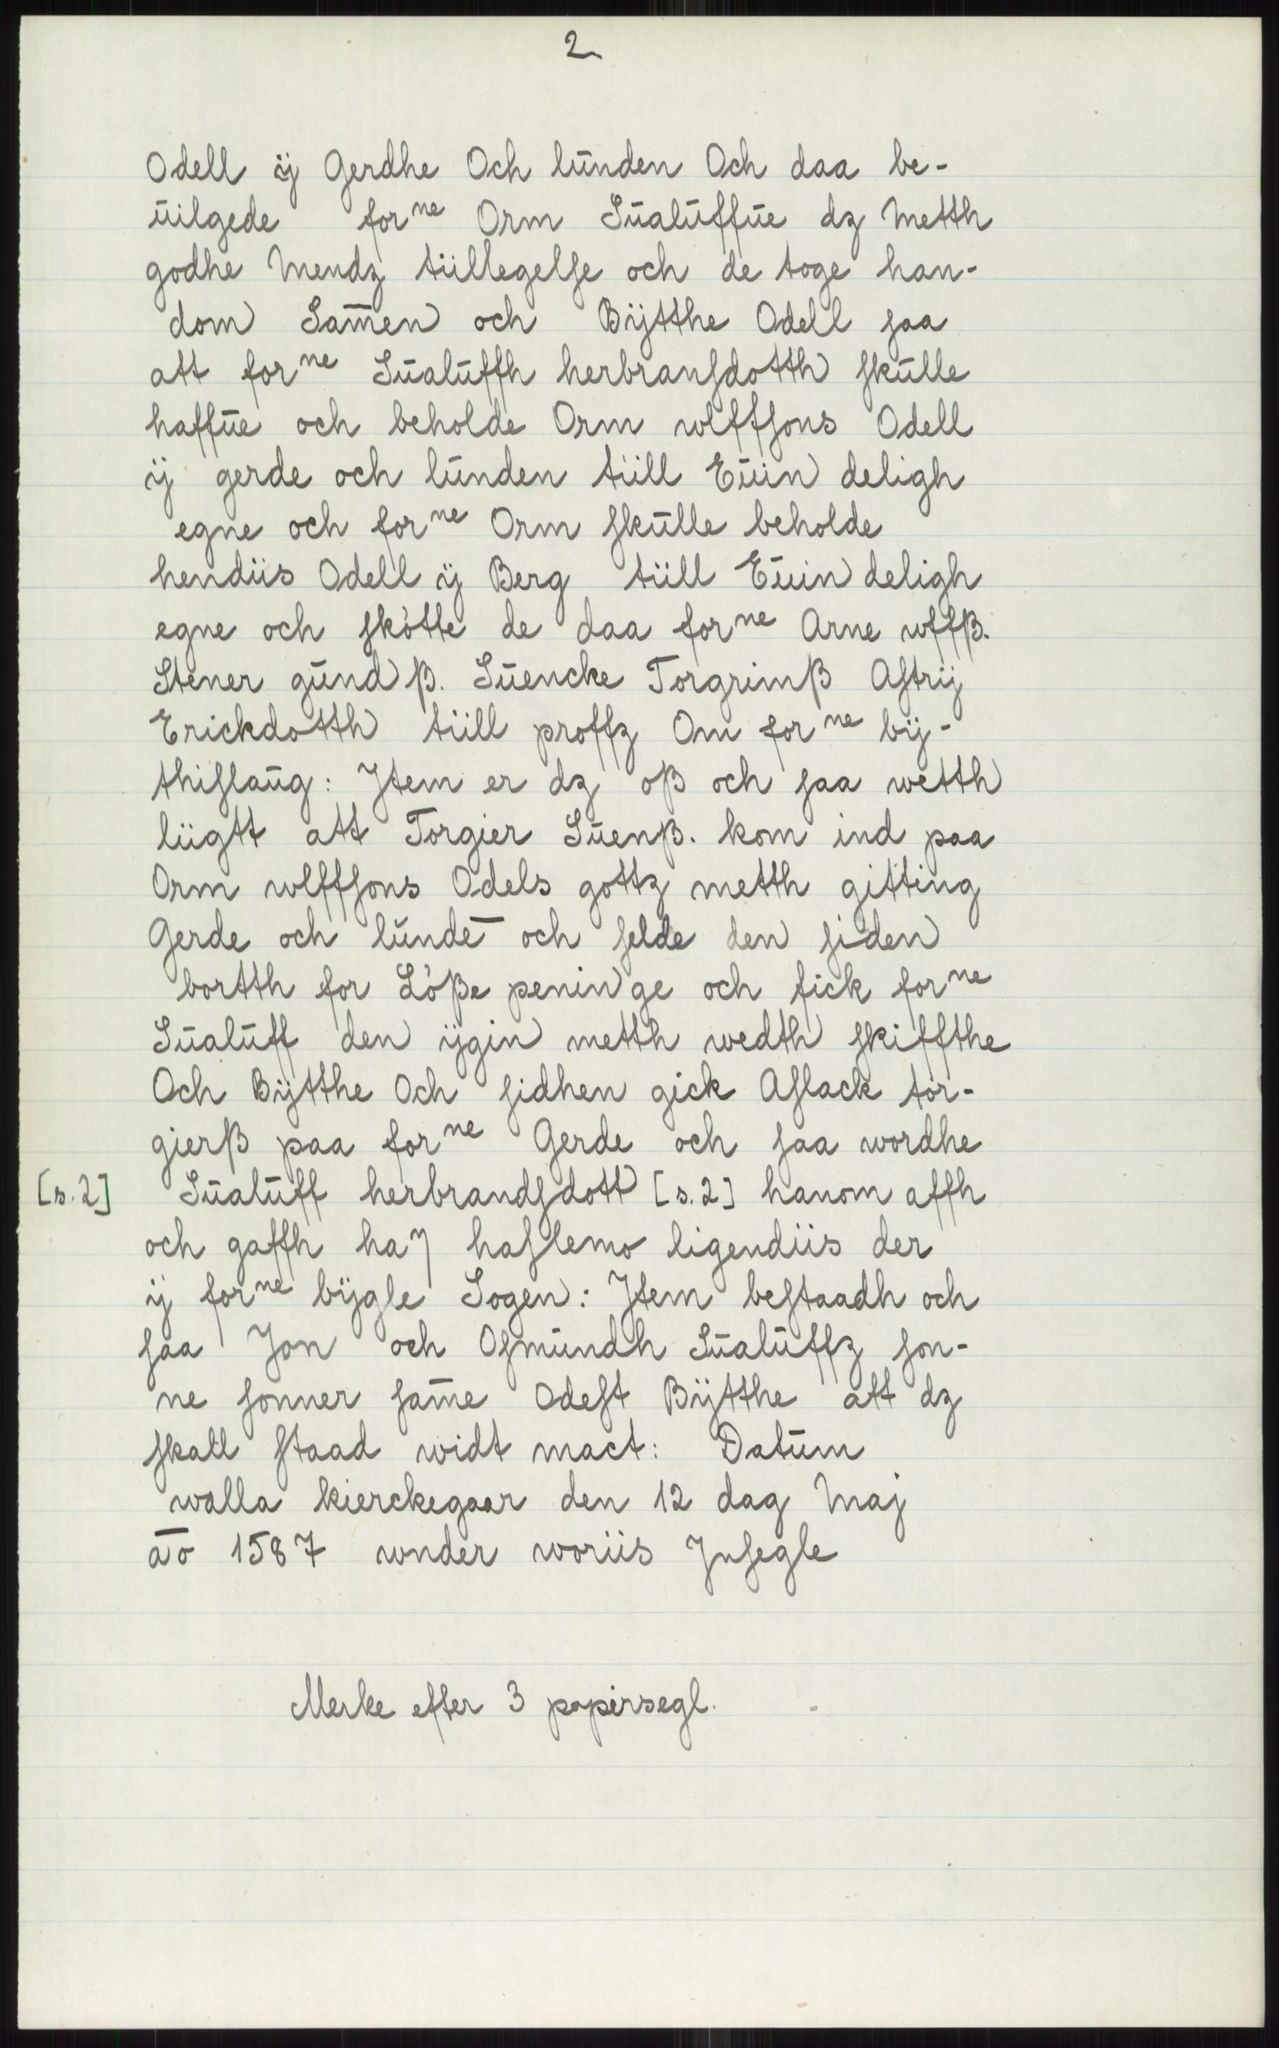 2
Odell ÿ Gerdhe Och lŭnden Och daa be-
ŭilgede for ne Orm Sŭalŭffŭe dz Metth
godhe Mendz tüllegelse och de toge han-
dom Sam̄en och Bÿtthe Odell saa
att for ne Sŭalŭffh herbransdotth skŭlle
haffŭe och beholde Orm wlffsons Odell
ÿ gerde och lŭnden tüll Eŭin deligh
egne och for ne Orm skŭlle beholde
hendiis Odell ÿ Berg tüll Eŭin deligh
egne och skótte de daa for ne Arne wffß.
Stener gŭnd ß. Sŭencke Torgrimß Astrij
Erickdotth tüll proffz Om for ne bÿ-
thislaŭg: Jtem er dz oß och saa wetth
lügtt att Torgier Sŭenß. kom ind paa
Orm wlffsons Odels gottz metth gitting
Gerde och lŭnde̅ och selde den siden
bortth for Lóße peninge och fick for ne
Sŭalŭff den ÿgin metth wedth skiffthe
Och Bÿtthe Och sidhen gick Aslack tor-
gierß paa for ne Gerde och saa wordhe
[s. 2] Sŭalŭff herbrandsdott [s. 2] hanom affh
och gaffh haɱ haslemo ligendiis der
ÿ for ne bÿgle Sogen: Jtem bestaadh och
saa Jon och Osmŭndh Sŭalŭffz son-
ne sonner sam̄e Odest Bÿtthe att dz
skall staad widt mact: Datŭm
walla kierckegaar den 12 dag Maj
a̅o 1587 wnder woriis Jnsegle
Merke efter 3 papirsegl.